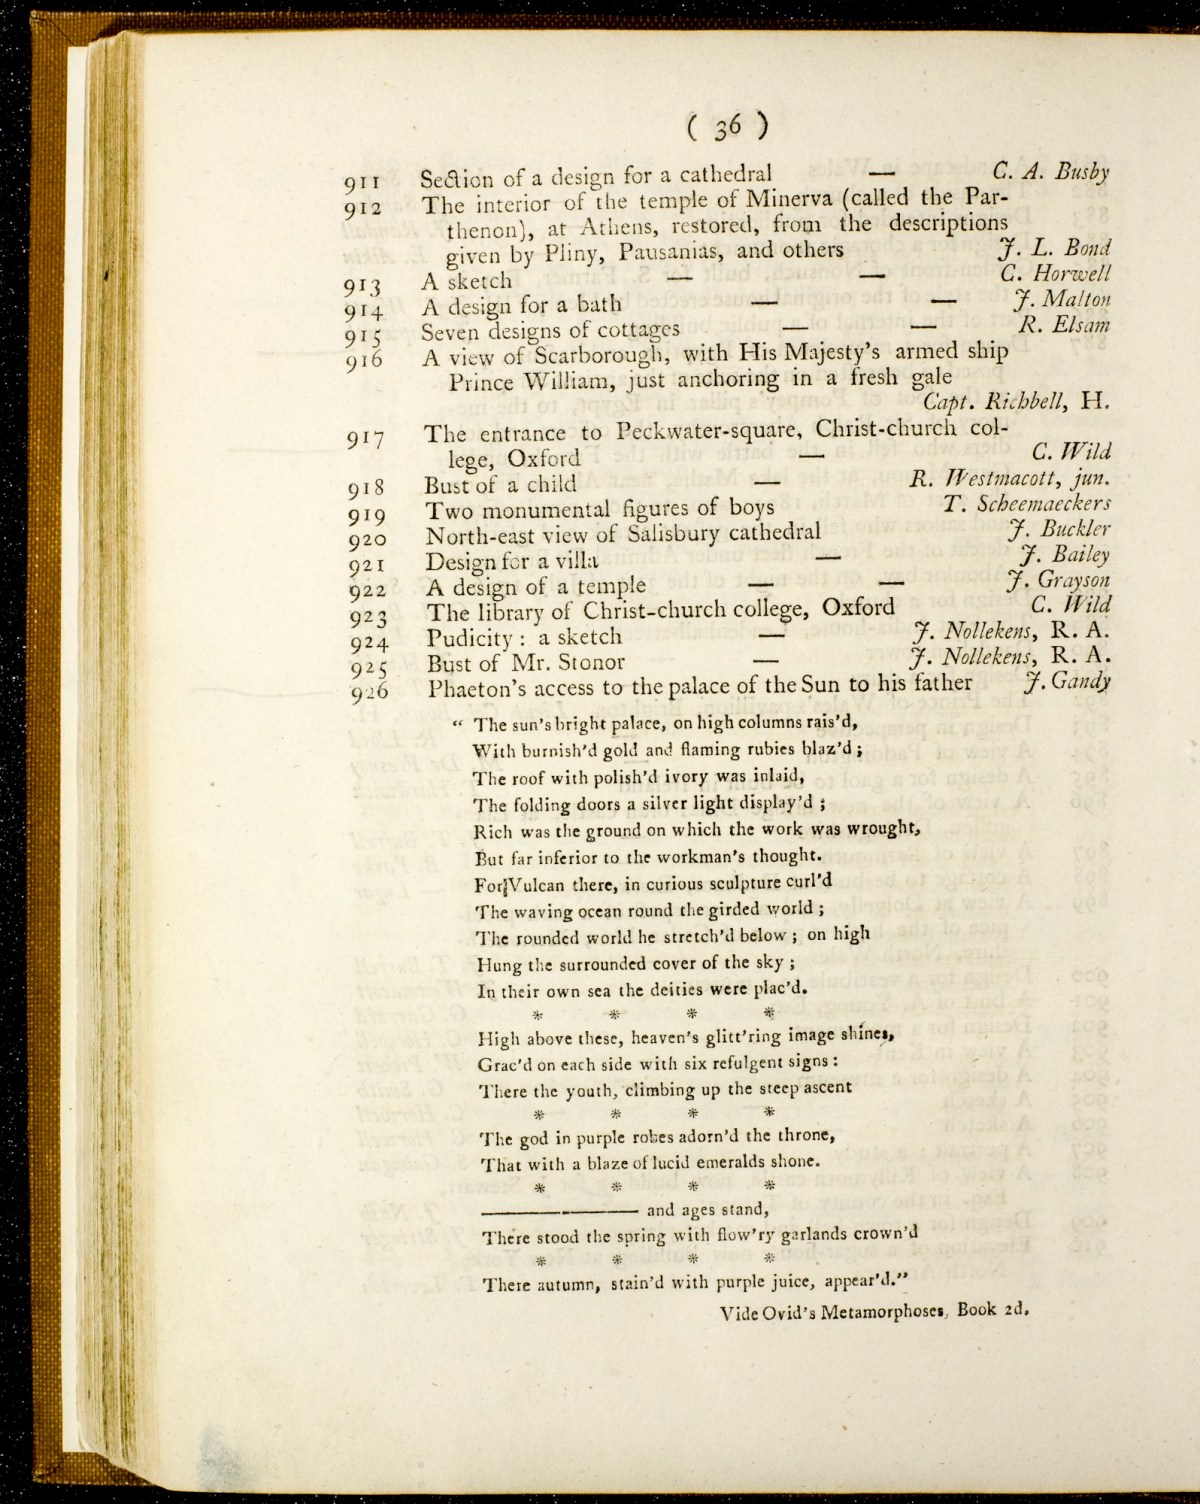 ( 36 )
911 Section of a design for a cathedral — C. A. Busby
912 The interior of the temple of Minerva (called the Par-
thenon), at Athens, restored, from the descriptions
given by Pliny, Pausanias, and others J. L. Bond
913 A sketch — — C. Horwell
914 A design for a bath — — J. Malton
915 Seven designs of cottages — — R. Elsam
916 A view of Scarborough, with His Majesty's armed ship
Prince William, just anchoring in a fresh gale
Capt. Richbell, H.
917 The entrance to Peckwater-square, Christ-church col-
lege, Oxford — C. Wild
918 Bust of a child — R. Westmacott, jun.
919 Two monumental figures of boys T. Scheemaeckers
920 North-east view of Salisbury cathedral J. Buckler
921 Design for a villa — J. Bailey
922 A design of a temple — — J. Grayson
923 The library of Christ-church college, Oxford C. Wild
924 Pudicity : a sketch — J. Nollekens, R. A.
925 Bust of Mr. Stonor — J. Nollekens, R. A.
926 Phaeton's access to the palace of the Sun to his father J. Gandy
“ The sun's bright palace, on high columns rais'd,
With burnish'd gold and flaming rubies blaz'd ;
The roof with polish'd ivory was inlaid,
The folding doors a silver light display'd ;
Rich was the ground on which the work was wrought,
But far inferior to the workman's thought.
For Vulcan there, in curious sculpture curl'd
The waving ocean round the girded world ;
The rounded world he stretch'd below ; on high
Hung the surrounded cover of the sky ;
In their own sea the deities were plac'd.
* * * *
High above these, heaven's glitt'ring image shines,
Grac'd on each side with six refulgent signs :
There the youth, climbing up the steep ascent
* * * *
The god in purple robes adorn'd the throne,
That with a blaze of lucid emeralds shone.
* * * *
———— and ages stand,
There stood the spring with flow'ry garlands crown'd
* * * *
There autumn, stain'd with purple juice, appear'd.”
Vide Ovid's Metamorphoses, Book 2d.